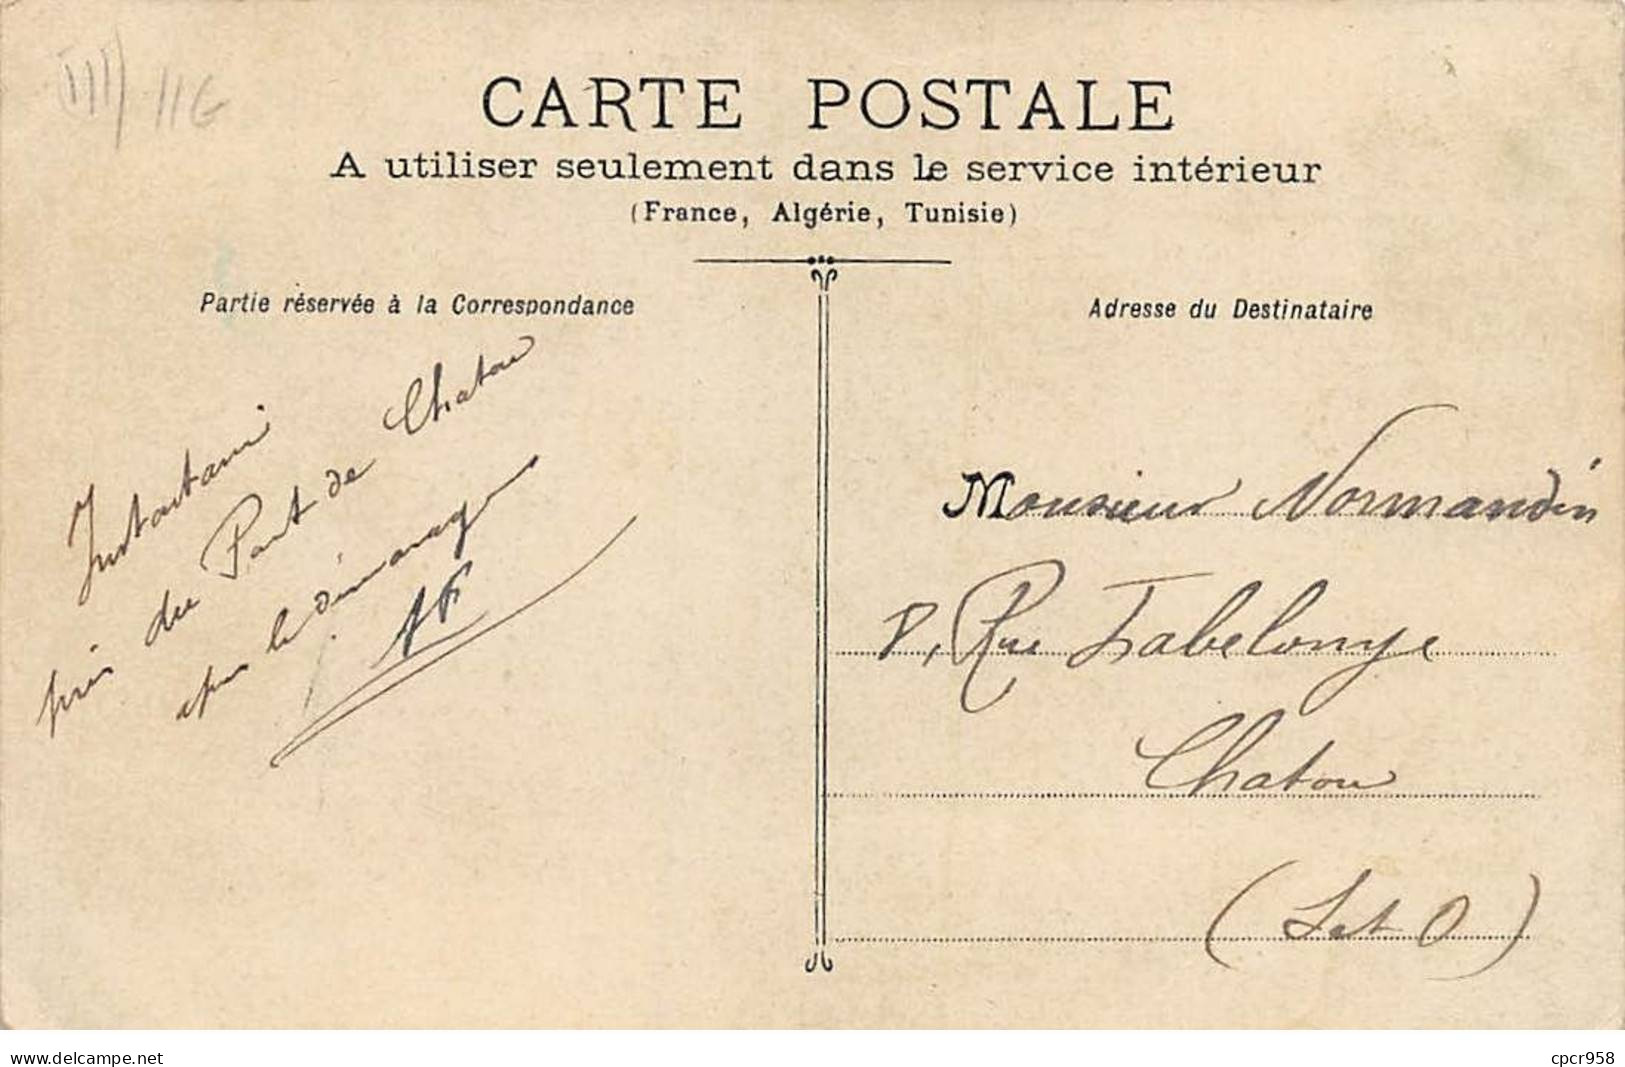 116
CARTE POSTALE
A utiliser seulement dans le service intérieur
(France, Algérie, Tunisie)
Partie réservée à la Correspondance
Instantané
pris du Pont de Chatou
après le déménagement
Adresse du Destinataire
Monsieur Normandin
8, Rue Labelonye
Chatou
(S et O)
www.delcampe.net
cpcr958